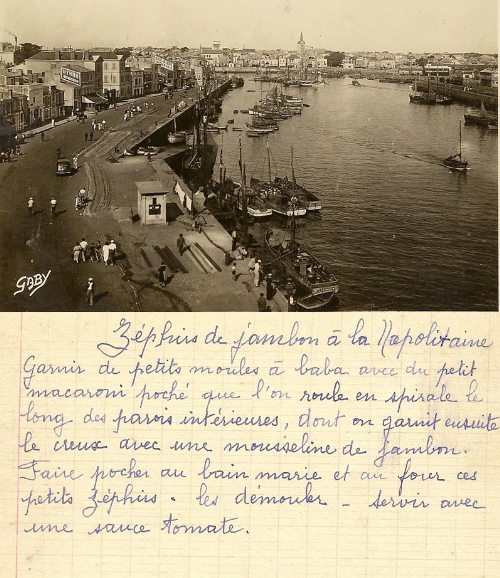 GABY
Zéphirs de jambon à la Napolitaine
Garnir de petits moules à baba avec du petit
macaroni poché que l'on roule en spirale le
long des parois intérieures, dont on garnit ensuite
le creux avec une mousseline de jambon.
Faire pocher au bain marie et au four ces
petits zéphirs. les démouler - servir avec
une sauce tomate.